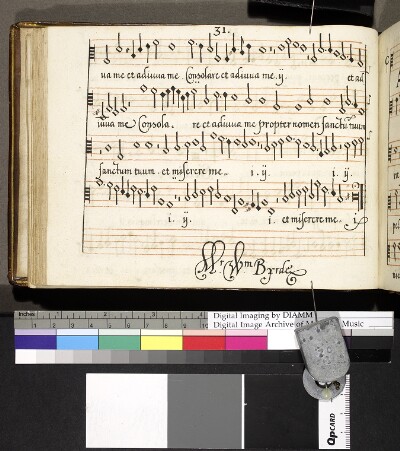 31.
va me et adiuva me Consolare et adiuva me .ij. et ad
iuva me Consola. re et adiuva me propter nomen sanctū tuum
sanctum tuum et miserere me.. .i. .ij. .i. ij.
.i. ij. .i. et miserere me.. .i.
Mr. Wm Byrde
inches
Digital Imaging by DIAMM
Digital Image Archive of Music
QPCARD